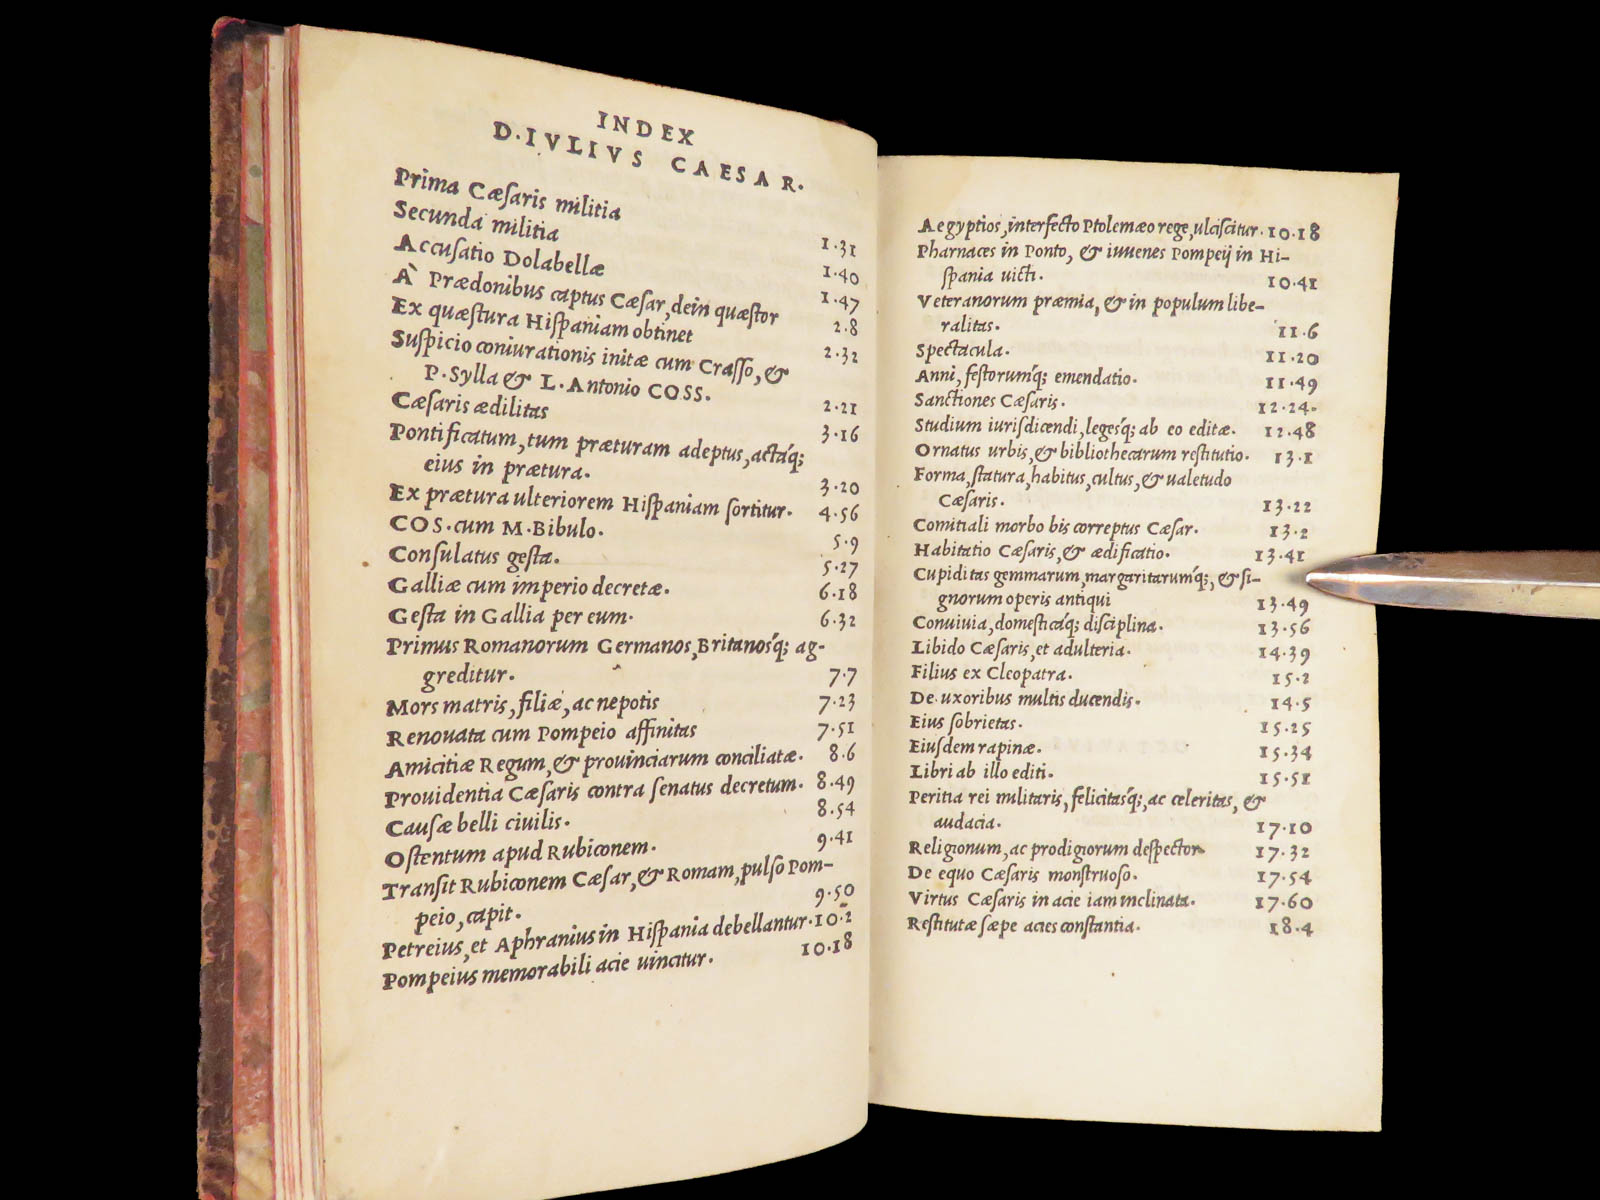 INDEX
D·IVLIVS CAESAR·
Prima Cæſaris militia 1·31
Secunda militia 1·40
Accuſatio Dolabellæ 1·47
A` Prædonibus captus Cæſar, dein quæſtor 2·8
Ex quæſtura Hiſpaniam obtinet 2·32
Suſpicio coniurationis initæ cum Craſſo, &
P·Sylla & L·Antonio COSS· 2·21
Cæſaris ædilitas 3·16
Pontificatum, tum præturam adeptus, actáq;
eius in prætura· 3·20
Ex prætura ulteriorem Hiſpaniam ſortitur· 4·56
COS·cum M·Bibulo· 5·9
Conſulatus geſta· 5·27
Galliæ cum imperio decretæ· 6·18
Geſta in Gallia per eum· 6·32
Primus Romanorum Germanos, Britanosq́; ag-
greditur· 7·7
Mors matris, filiæ, ac nepotis 7·23
Renouata cum Pompeio affinitas 7·51
Amicitiæ Regum, & prouinciarum conciliatæ· 8·6
Prouidentia Cæſaris contra ſenatus decretum· 8·49
Cauſæ belli ciuilis· 8·54
Oſtentum apud Rubiconem· 9·41
Tranſit Rubiconem Cæſar, & Romam, pulſo Pom-
peio, capit· 9·50
Petreius, et Aphranius in Hiſpania debellantur·10·2
Pompeius memorabili acie uincitur· 10·18
Aegyptios, interfecto Ptolemæo rege, ulciſcitur·10·18
Pharnaces in Ponto, & iuuenes Pompeij in Hi-
ſpania uicti· 10·41
Veteranorum præmia, & in populum libe-
ralitas· 11·6
Spectacula· 11·20
Anni, feſtorumq́; emendatio· 11·49
Sanctiones Cæſaris· 12·24·
Studium iuriſdicendi, legesq́; ab eo editæ· 12·48
Ornatus urbis, & bibliothecarum reſtitutio· 13·1
Forma, ſtatura, habitus, cultus, & ualetudo
Cæſaris· 13·22
Comitiali morbo bis correptus Cæſar· 13·2
Habitatio Cæſaris, & ædificatio· 13·41
Cupiditas gemmarum, margaritarumq́;, & ſi-
gnorum operis antiqui 13·49
Conuiuia, domeſticáq; diſciplina· 13·56
Libido Cæſaris, et adulteria· 14·39
Filius ex Cleopatra· 15·2
De uxoribus multis ducendis· 14·5
Eius ſobrietas· 15·25
Eiuſdem rapinæ· 15·34
Libri ab illo editi· 15·51
Peritia rei militaris, felicitasq́;, ac celeritas, &
audacia· 17·10
Religionum, ac prodigiorum deſpector 17·32
De equo Cæſaris monſtruoſo· 17·54
Virtus Cæſaris in acie iam inclinata· 17·60
Reſtitutæ ſæpe acies conſtantia· 18·4